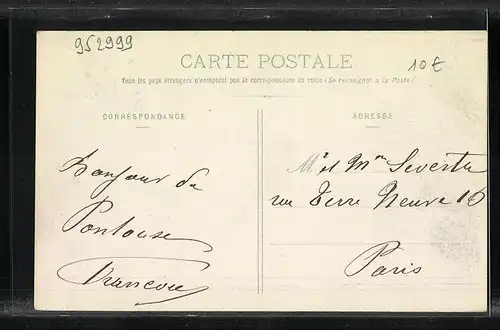 952999
CARTE POSTALE
10€
Tous les pays étrangers n'acceptent pas la correspondance au recto (Se renseigner à la Poste)
CORRESPONDANCE
ADRESSE
Bonjour de
Pontoise
Mr et Mme
rue Terre Neuve 16
Paris